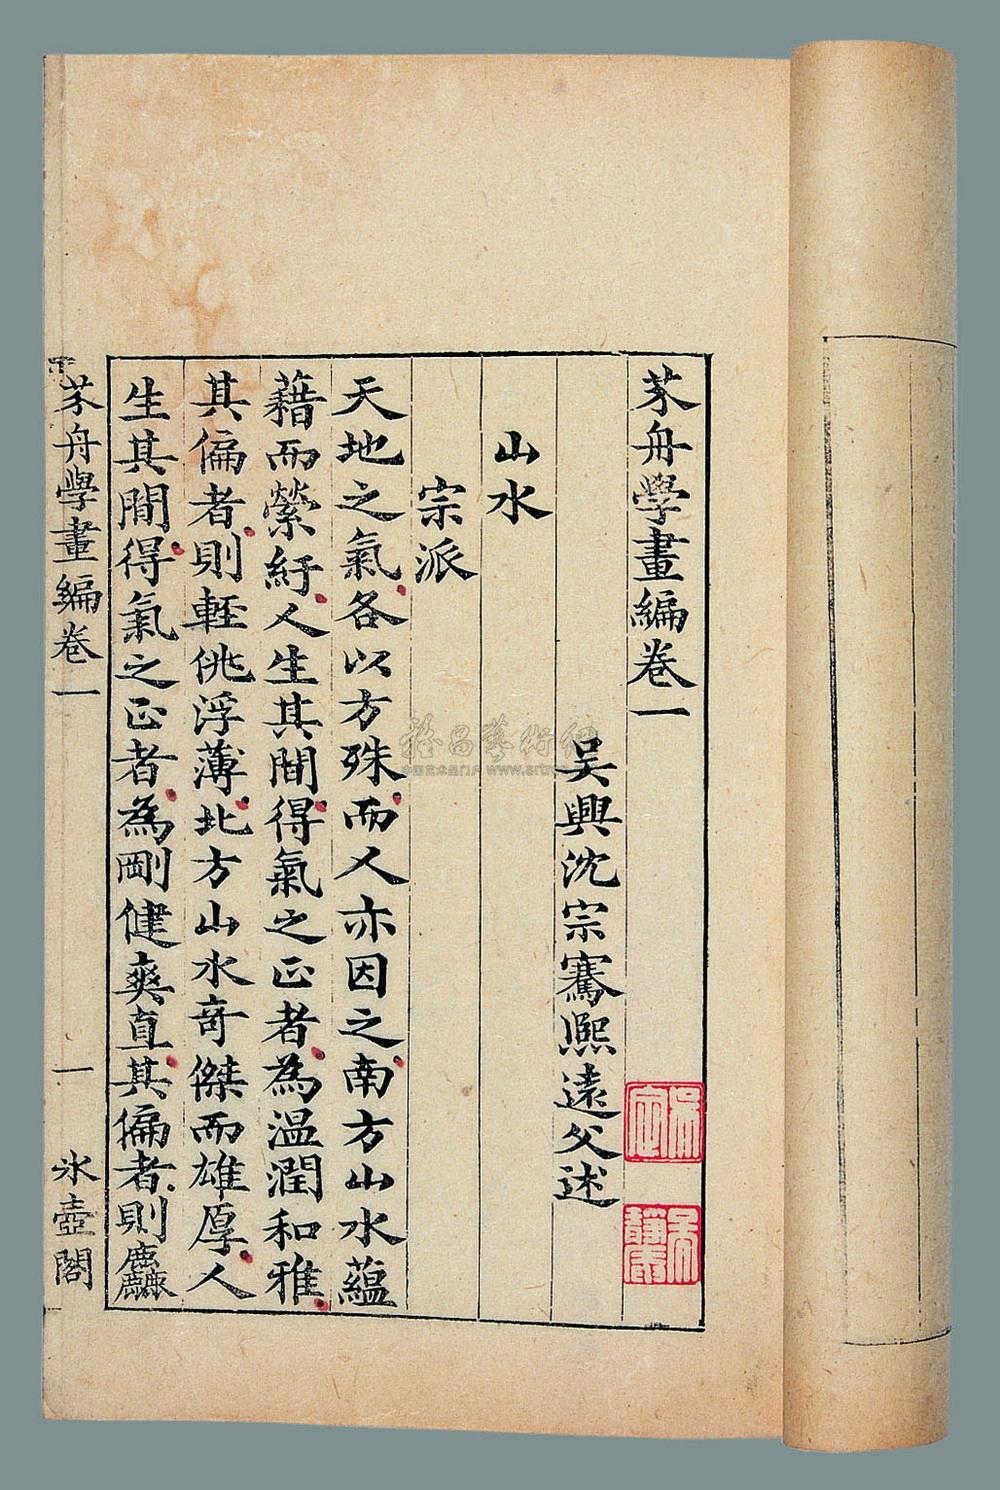 芥舟學畫編卷一
吴興沈宗騫熙遠父述
山水
宗派
天地之氣各以方殊而人亦因之南方山水蘊
藉而縈紆人生其間得氣之正者為温潤和雅
其偏者則輕佻浮薄北方山水奇傑而雄厚人
生其間得氣之正者為剛健爽直其偏者則麤
芥舟學畫編卷一
一
冰壺閣